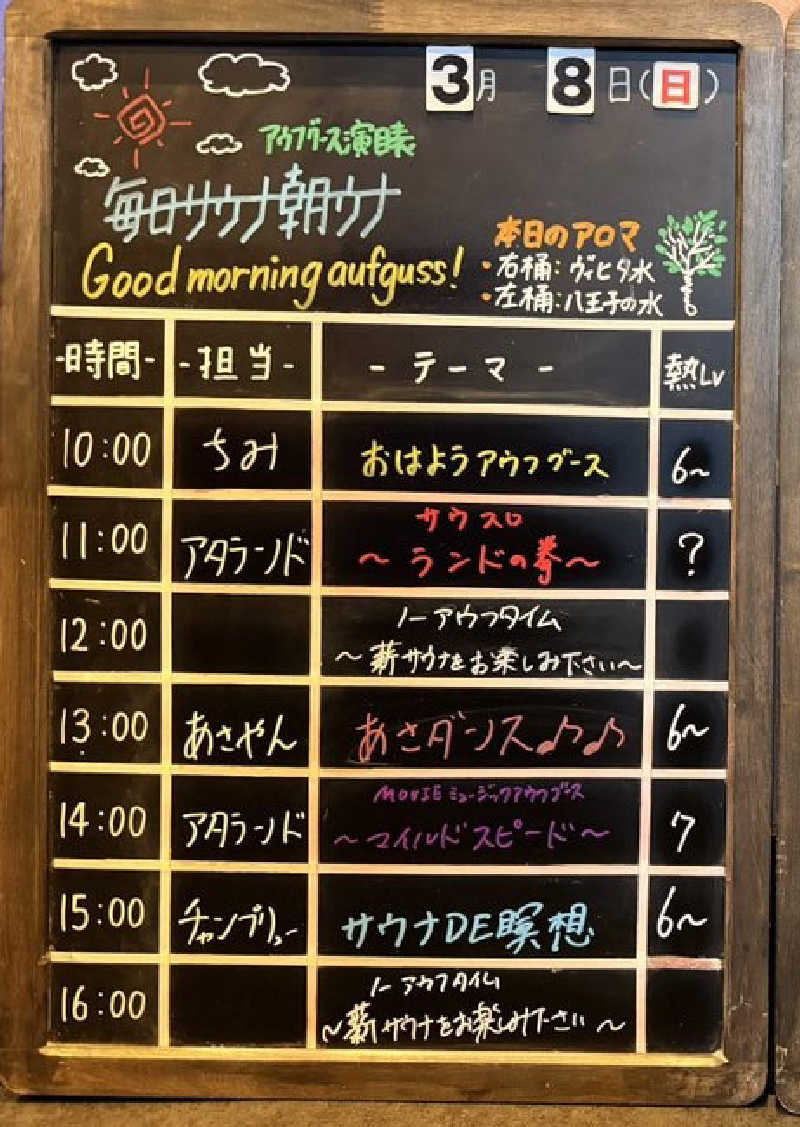 3月 8日(日)
アウフグース演目表
毎日サウナ朝ウナ
Good morning aufguss!
本日のアロマ
・右桶:ヴィヒタ水
・左桶:八王子の水
-時間- -担当- -テーマ- 熱Lv
10:00 ちみ おはようアウフグース 6~
11:00 アタランド サウスロ ?
~ランドの巻~
12:00 ノーアウフタイム
~薪サウナをお楽しみ下さい~
13:00 あさやん あさダンス♪♪ 6~
14:00 アタランド MOVIEミュージックアウフグース 7
~マイルドスピード~
15:00 チャンブリュー サウナDE瞑想 6~
16:00 ノーアウフタイム
~薪サウナをお楽しみ下さい~